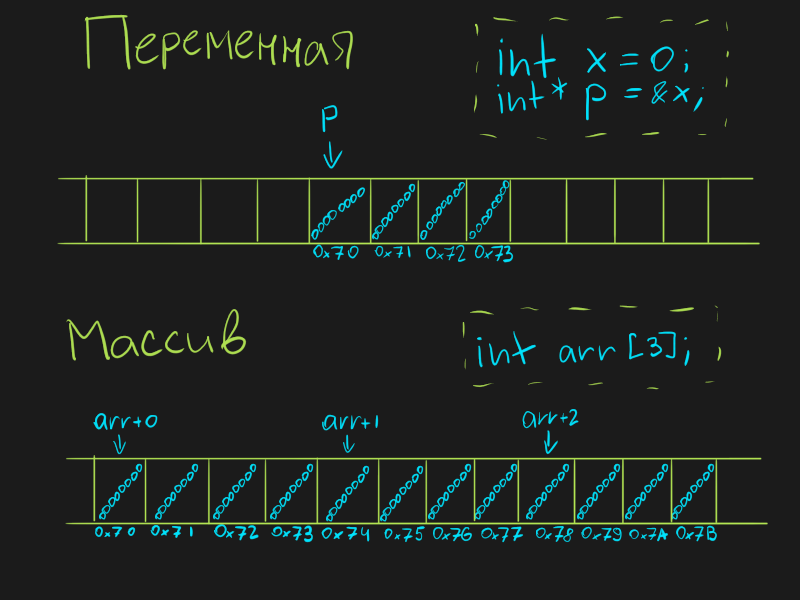 Переменная
int x = 0;
int* p = &x;
p
00000000 00000000 00000000 00000000
0x70 0x71 0x72 0x73
Массив
int arr [3];
arr+0 arr+1 arr+2
00000000 00000000 00000000 00000000 00000000 00000000 00000000 00000000 00000000 00000000 00000000 00000000
0x70 0x71 0x72 0x73 0x74 0x75 0x76 0x77 0x78 0x79 0x7A 0x7B